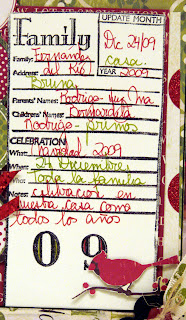 UPDATE MONTH
Family
Dic 24/09
Family: Fernandez casa.
Address: del Rio YEAR 2009
Bruna,
Parents' Names: Rodrigo -
Children's Names: Bernardita
Rodrigo - primos
CELEBRATION:
What: navidad - 2009
When: 24 Diciembre,
Who: Toda la familia
Notes: celebración en
nuestra casa como
todos los años
09